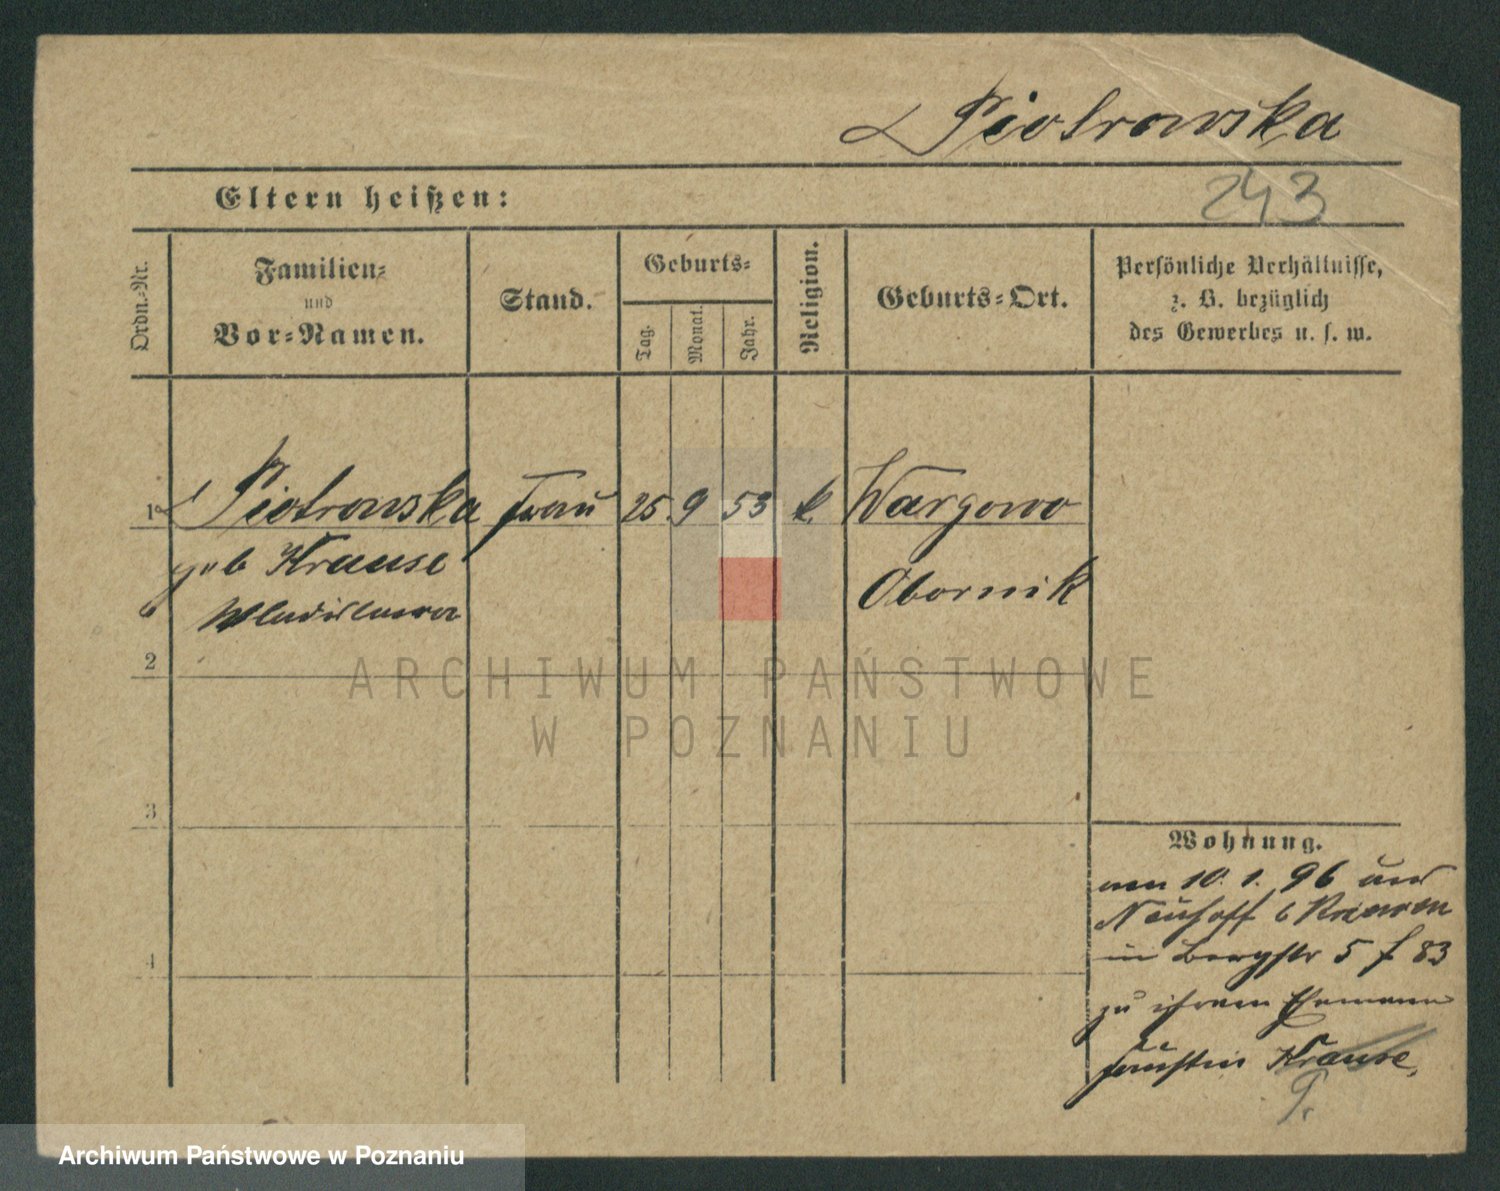 Piotrowska
Eltern heißen:
243
Ordn.-Nr.
Familien-
und
Vor-Namen.
Stand.
Geburts-
Tag.
Monat.
Jahr.
Religion.
Geburts-Ort.
Persönliche Verhältnisse,
z. B. bezüglich
des Gewerbes u. s. w.
1 Piotrowska Frau 25. 9 53 k. Wargowo
geb Krause
Obornik
Wladislawa
2
ARCHIWUM PAŃSTWOWE
W POZNANIU
3
Wohnung.
am 10. 1. 96 aus
Neuhoff b
4
in Bergstr 5 f 83
zu ihrem Ehemann
Faustin Krause,
P.
Archiwum Państwowe w Poznaniu